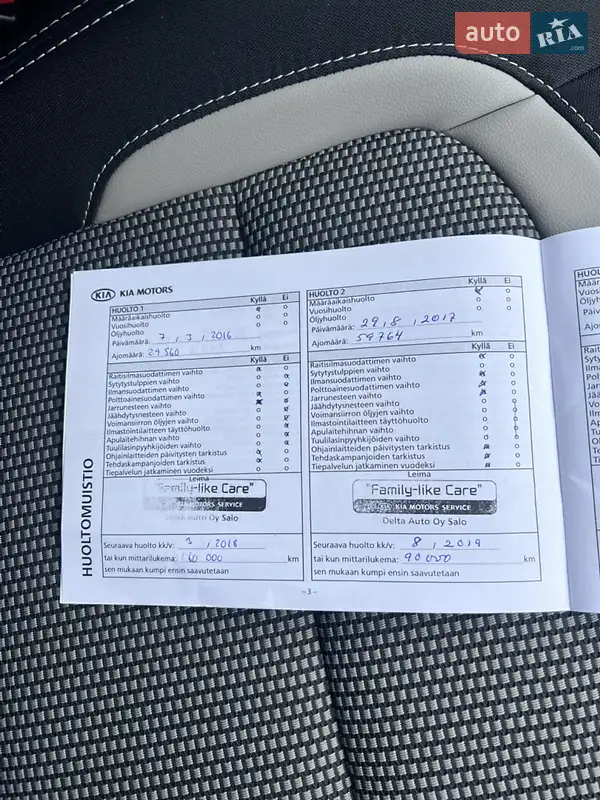 auto RIA .com
KIA KIA MOTORS
HUOLTOMUISTIO
HUOLTO 1 Kyllä Ei
Määräaikaishuolto
Vuosihuolto
Öljyhuolto
Päivämäärä: 7 , 3 , 2016
Ajomäärä: 29 560 km
Kyllä Ei
Raitisilmasuodattimen vaihto
Sytytystulppien vaihto
Ilmansuodattimen vaihto
Polttoainesuodattimen vaihto
Jarrunesteen vaihto
Jäähdytysnesteen vaihto
Voimansiirron öljyjen vaihto
Ilmastointilaitteen täyttöhuolto
Apulaitehihnan vaihto
Tuulilasinpyyhkijöiden vaihto
Ohjainlaitteiden päivitysten tarkistus
Tehdaskampanjoiden tarkistus
Tiepalvelun jatkaminen vuodeksi
Leima
"Family-like Care"
KIA MOTORS SERVICE
Delta Auto Oy Salo
Seuraava huolto kk/v: 3 , 2018
tai kun mittarilukema: 60 000 km
sen mukaan kumpi ensin saavutetaan
HUOLTO 2 Kyllä Ei
Määräaikaishuolto
Vuosihuolto
Öljyhuolto
Päivämäärä: 29 , 8 , 2017
Ajomäärä: 59764 km
Kyllä Ei
Raitisilmasuodattimen vaihto
Sytytystulppien vaihto
Ilmansuodattimen vaihto
Polttoainesuodattimen vaihto
Jarrunesteen vaihto
Jäähdytysnesteen vaihto
Voimansiirron öljyjen vaihto
Ilmastointilaitteen täyttöhuolto
Apulaitehihnan vaihto
Tuulilasinpyyhkijöiden vaihto
Ohjainlaitteiden päivitysten tarkistus
Tehdaskampanjoiden tarkistus
Tiepalvelun jatkaminen vuodeksi
Leima
"Family-like Care"
KIA KIA MOTORS SERVICE
Delta Auto Oy Salo
Seuraava huolto kk/v: 8 , 2019
tai kun mittarilukema: 90 000 km
sen mukaan kumpi ensin saavutetaan
-3-